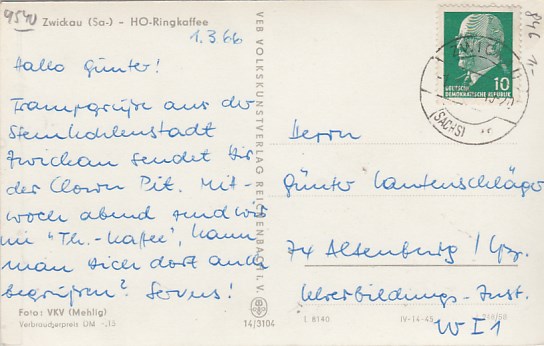 9540
Zwickau (Sa-) - HO-Ringkaffee
1.3.66
Hallo Günter!
Trampgrüße aus der
Steinkohlenstadt
Zwickau sendet Dir
der Clown Pit. Mit-
woch abend sind wir
im "Th.-Kaffee", kann
man sich dort auch
begrüßen? Servus!
Foto: VKV (Mehlig)
Verbraucherpreis DM -,15
VEB VOLKSKUNSTVERLAG REICHENBACH I. V.
14/3104
846 1-
10
DEUTSCHE
DEMOKRATISCHE REPUBLIK
(SACHS)
Herrn
Günter Lautenschläger
74 Altenburg / Lpz.
Lehrerbildungs-Inst.
W I 1
L 8140
IV-14-45